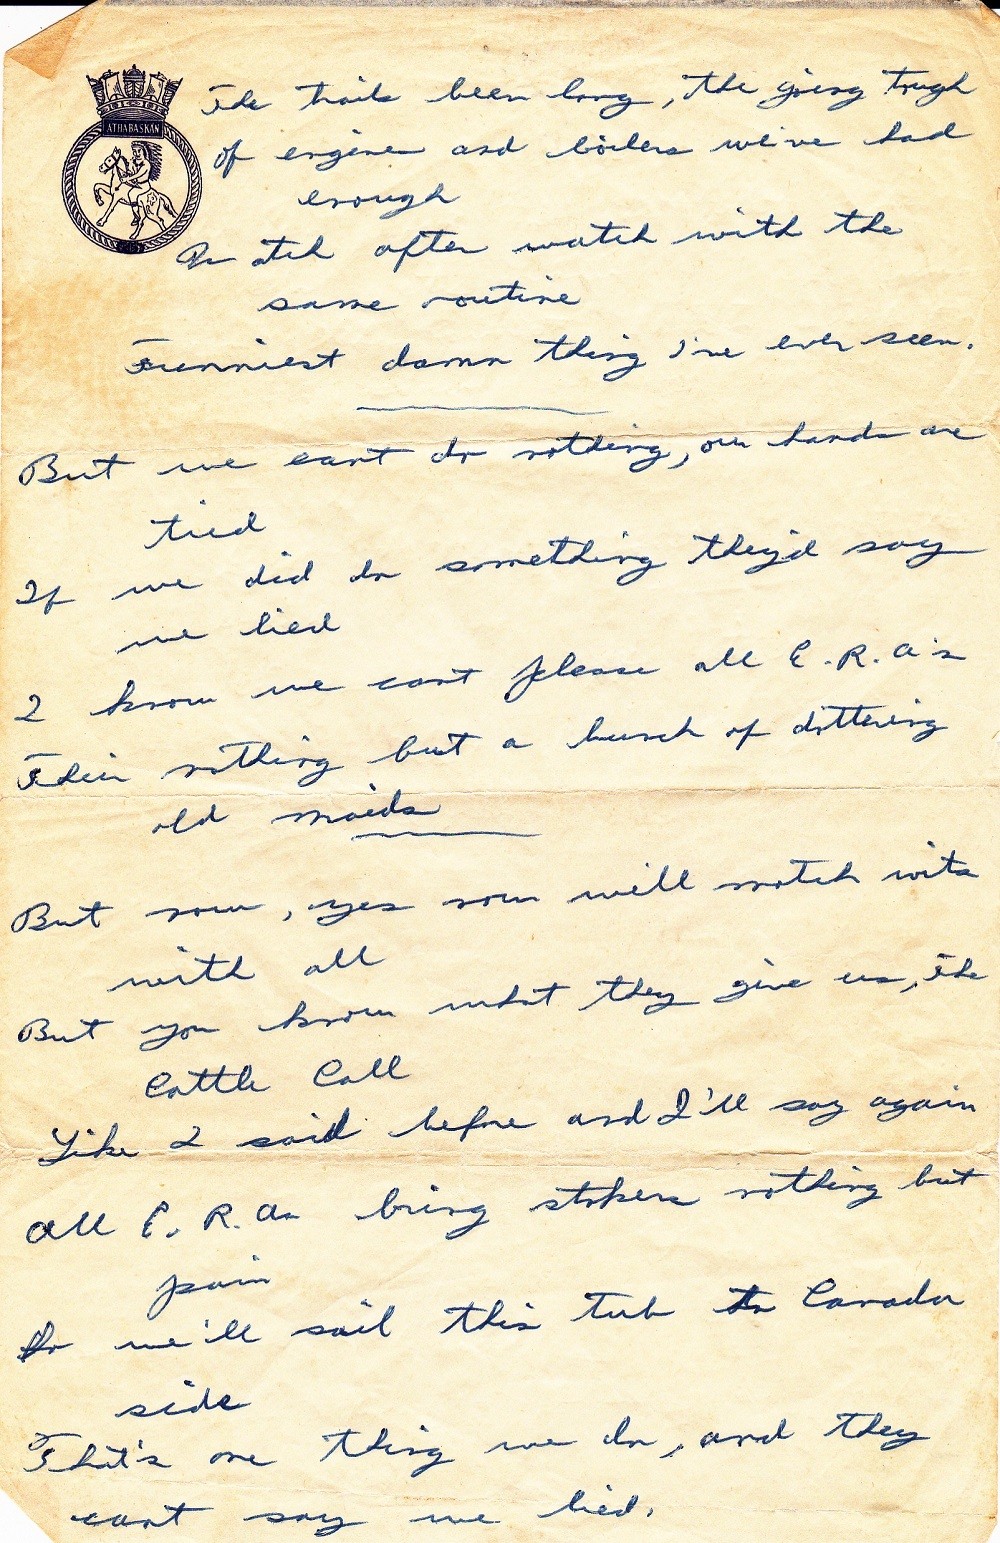 ATHABASKAN
The trails been long, the going tough
of engine and boilers we've had
enough
Watch after watch with the
same routine
Funniest damn thing I've ever seen.
But we cant do nothing, our hands are
tied
If we did do something they'd say
we lied
I know we cant please all E.R.A's
Their nothing but a bunch of dottering
old maids
But now, yes now we'll match wits
with all
But you know what they give us, the
Cattle Call
Like I said before and I'll say again
All E.R.As bring stokers nothing but
pain
So we'll sail this tub to Canada
side
That's one thing we do, and they
cant say we lied.